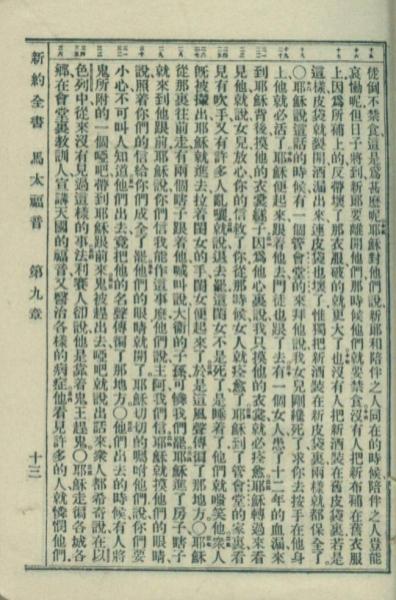 徒倒不禁食這是為甚麽呢耶穌對他們說新郎和陪伴之人同在的時候陪伴之人豈能
哀慟呢但日子將到新郎要離開他們那時候他們就要禁食沒有人把新布補在舊衣服
上因為所補上的反帶壞了那衣服破的就更大了也沒有人把新酒裝在舊皮袋裏若是
這樣皮袋就裂開酒漏出來連皮袋也壞了惟獨把新酒裝在新皮袋裏兩樣就都保全了
〇耶穌說這話的時候有一個管會堂的來拜他說我女兒剛纔死了求你去按手在他身
上他就必活了耶穌便起來跟着他去門徒也跟了去有一個女人患了十二年的血漏來
到耶穌背後摸他的衣裳繸子因為他心裏說我只摸他的衣裳就必痊愈耶穌轉過來看
見他就說女兒放心你的信救了你從那時候女人就痊愈了耶穌到了管會堂的家裏看
見有吹手又有許多人亂嚷就說退去罷這閨女不是死了是睡着了他們就嗤笑他衆人
既被攆出耶穌就進去拉着閨女的手閨女便起來了於是這風聲傳徧了那地方〇耶穌
從那裏往前走有兩個瞎子跟着他喊叫說大衛的子孫可憐我們罷耶穌進了房子瞎子
就來到他跟前耶穌說你們信我能作這事麽他們說主阿我們信耶穌就摸他們的眼睛
說照着你們的信給你們成全了罷他們的眼睛就開了耶穌切切的囑咐他們說你們要
小心不可叫人知道他們出去竟把他的名聲傳徧了那地方〇他們出去的時候有人將
鬼所附的一個啞吧帶到耶穌跟前來鬼被趕出去啞吧就說出話來衆人都希奇說在以
色列中從來沒有見過這樣的事法利賽人卻說他是靠着鬼王趕鬼〇耶穌走徧各城各
鄉在會堂裏教訓人宣講天國的福音又醫治各樣的病症他看見許多的人就憐憫他們
新約全書 馬太福音 第九章 十三